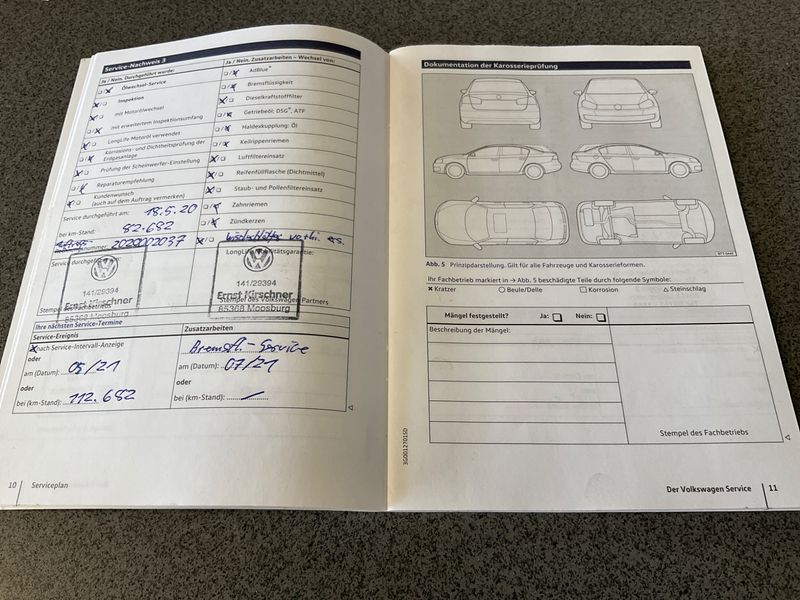 Service-Nachweis 3
Ja / Nein, Durchgeführt wurde:
Ölwechsel-Service
Inspektion
mit Motorölwechsel
mit erweitertem Inspektionsumfang
LongLife-Motoröl verwendet
Korrosions- und Dichtheitsprüfung der
Erdgasanlage
Prüfung der Scheinwerfer-Einstellung
Reparaturempfehlung
Kundenwunsch
(auch auf dem Auftrag vermerken)
Service durchgeführt am: 18.5.20
bei km-Stand: 82.682
nummer: 2020002037
Service durchgeführt
141/29394
Ernst Kirschner
85368 Moosburg
Stempel des
Ja / Nein, Zusatzarbeiten – Wechsel von:
AdBlue®
Bremsflüssigkeit
Dieselkraftstofffilter
Getriebeöl: DSG®, ATF
Haldexkupplung: Öl
Keilrippenriemen
Luftfiltereinsatz
Reifenfüllflasche (Dichtmittel)
Staub- und Pollenfiltereinsatz
Zahnriemen
Zündkerzen
LongLife
itätsgarantie:
141/29394
Ernst Kirschner
85368 Moosburg
Stempel des Volkswagen Partners
Ihre nächsten Service-Termine
Service-Ereignis
nach Service-Intervall-Anzeige
oder
am (Datum): 05/21
oder
bei (km-Stand): 112.682
Zusatzarbeiten
Bremsfl.-Service
am (Datum): 07/21
oder
bei (km-Stand):
10 Serviceplan
Dokumentation der Karosserieprüfung
Abb. 5 Prinzipdarstellung. Gilt für alle Fahrzeuge und Karosserieformen.
Ihr Fachbetrieb markiert in → Abb. 5 beschädigte Teile durch folgende Symbole:
× Kratzer ○ Beule/Delle □ Korrosion △ Steinschlag
Mängel festgestellt? Ja: Nein:
Beschreibung der Mängel:
Stempel des Fachbetriebs
3G0012701SD
Der Volkswagen Service 11